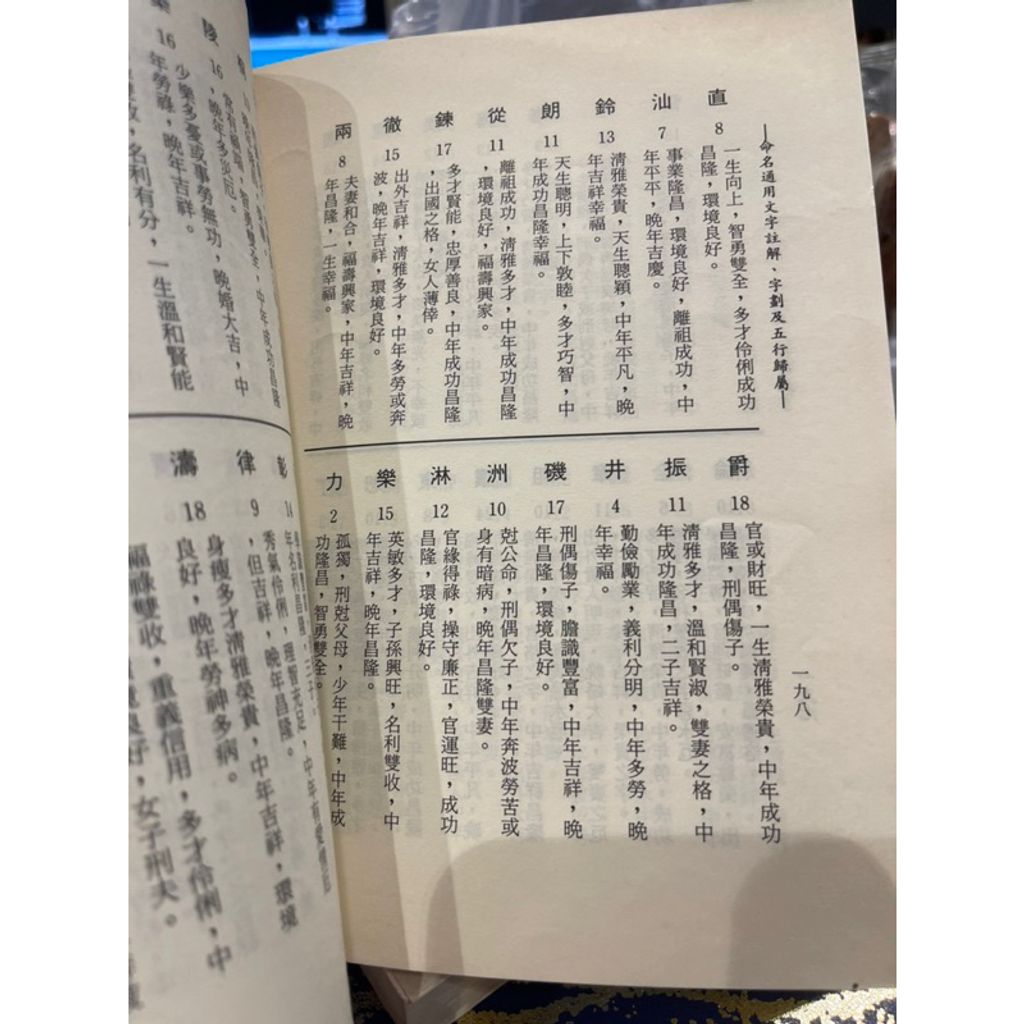 —命名通用文字註解、字劃及五行歸屬—
直 8 一生向上，智勇雙全，多才伶俐成功
昌隆，環境良好。
汕 7 事業隆昌，環境良好，離祖成功，中
年平平，晚年吉慶。
鈴 13 清雅榮貴，天生聰穎，中年平凡，晚
年吉祥幸福。
朗 11 天生聰明，上下敦睦，多才巧智，中
年成功昌隆幸福。
從 11 離祖成功，清雅多才，中年成功昌隆
，環境良好，福壽興家。
鍊 17 多才賢能，忠厚善良，中年成功昌隆
，出國之格，女人薄倖。
徹 15 出外吉祥，清雅多才，中年多勞或奔
波，晚年吉祥，環境良好。
兩 8 夫妻和合，福壽興家，中年吉祥，晚
年昌隆，一生幸福。
爵 18 官或財旺，一生清雅榮貴，中年成功
昌隆，刑偶傷子。
振 11 清雅多才，溫和賢淑，雙妻之格，中
年成功隆昌，二子吉祥。
井 4 勤儉勵業，義利分明，中年多勞，晚
年幸福。
磯 17 刑偶傷子，膽識豐富，中年吉祥，晚
年昌隆，環境良好。
洲 10 尅公命，刑偶欠子，中年奔波勞苦或
身有暗病，晚年昌隆雙妻。
淋 12 官緣得祿，操守廉正，官運旺，成功
昌隆，環境良好。
樂 15 英敏多才，子孫興旺，名利雙收，中
年吉祥，晚年昌隆。
力 2 孤獨，刑尅父母，少年干難，中年成
功隆昌，智勇雙全。
一九八
智勇雙全，中年成功昌隆
，晚年多災厄。
陵 16 少樂多憂或事勞無功，晚婚大吉，中
年勞碌，晚年吉祥。
16
，名利有分，一生溫和賢能
彰 14
律 9 秀氣伶俐，理智充足，中年吉祥，環境
，但吉祥，晚年昌隆。
濤 18 身瘦多才清雅榮貴，中年吉祥，環境
良好，晚年勞神多病。
福祿雙收，重義信用，多才伶俐，中
良好，女子刑夫。